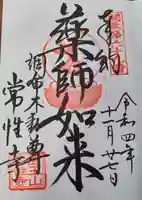 奉拝
令和四年
十一月廿七日
薬師如来
調布不動尊
常性寺